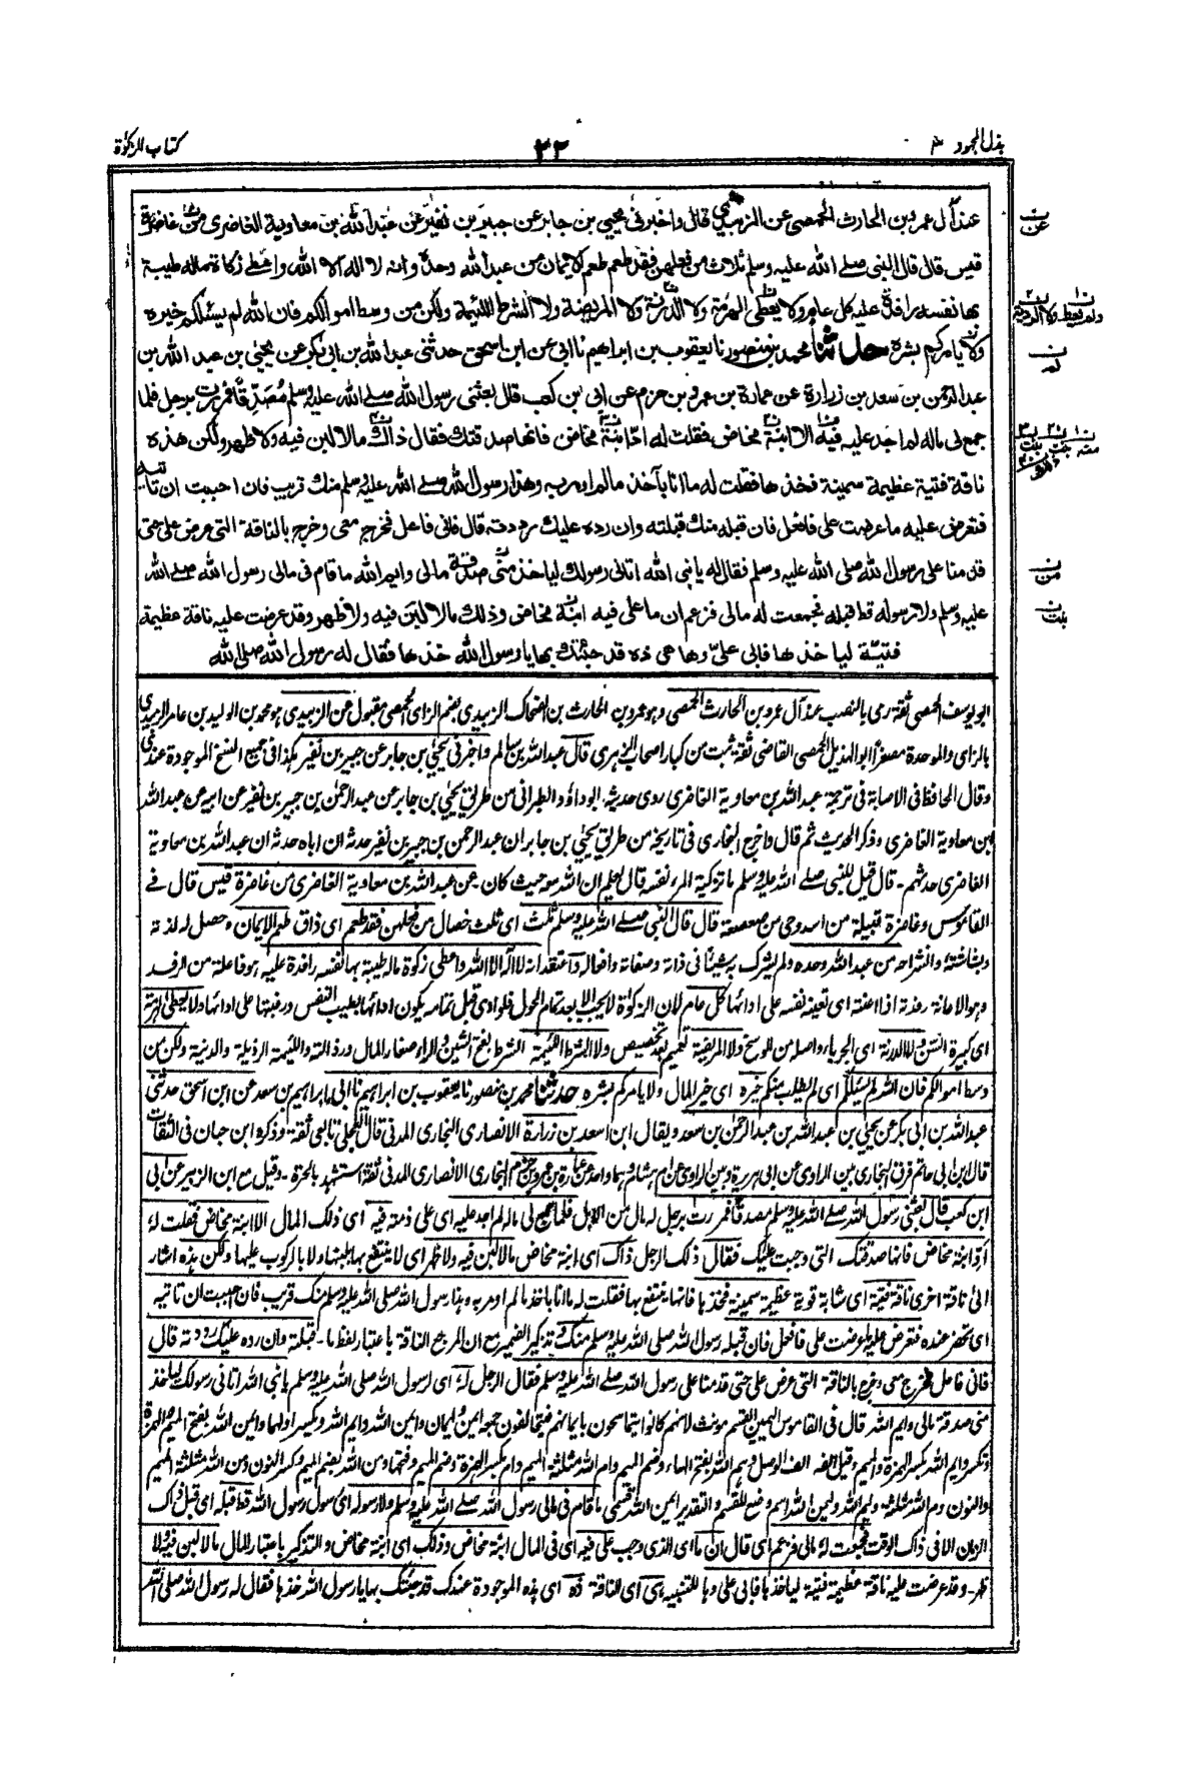 بذل المجهود ٣
٣٢
كتاب الزكوٰة
عند آل عمرو بن الحارث الحمصى عن الزبيدي قال واخبرنى يحيي بن جابر عن جبير بن نفير عن عبد الله بن معاوية الغاضرى من غاضرة
قيس قال قال النبى صلے الله عليه وسلم ثلاث من فعلهن فقد طعم طعم الايمان من عبد الله وحدة وانه لا اله الا الله واعطے زكاة ماله طيبة
بها نفسه رافدة عليه كل عام ولا يعطى الهرمة ولا الدرنة ولا المريضة ولا الشرط اللئيمة ولكن من وسط اموالكم فان الله لم يسئلكم خيره
ولا يامركم بشره حدثنا محمد بن منصور نا يعقوب بن ابراهيم نا ابى عن ابن اسحق حدثنى عبد الله بن ابى بكر عن يحيٰى بن عبد الله بن
عبد الرحمن بن سعد بن زرارة عن عمارة بن عمرو بن حزم عن ابى بن كعب قال بعثنى رسول الله صلے الله عليه وسلم مُصَدِّقا فمررت برجل فلما
جمع لى ماله لم اجد عليه فيه الا ابنة مخاض فقلت له ادّ ابنة مخاض فانها صدقتك فقال ذاك مالا لبن فيه ولا ظهر ولكن هذه
ناقة فتية عظيمة سمينة فخذها فقلت له ما انا بآخذ ما لم اومر به وهذا رسول الله صلے الله عليه وسلم منك قريب فان احببت ان تاتيه
فتعرض عليه ما عرضت على فافعل فان قبله منك قبلته وان رده عليك رددته قال فانى فاعل فخرج معى وخرج بالناقة التى عرض على حتى
قدمنا على رسول الله صلى الله عليه وسلم فقال له يا نبى الله اتانى رسولك لياخذ منى صدقة مالى وايم الله ما قام فى مالى رسول الله صلے الله
عليه وسلم ولا رسوله قط قبله فجمعت له مالى فزعم ان ما على فيه ابنة مخاض وذلك مالا لبن فيه ولا ظهر وقد عرضت عليه ناقة عظيمة
فتيّة لياخذها فابى علىّ وها هى ذه قد جئتك بها يا رسول الله خذها فقال له رسول الله صلى الله
ابو يوسف الحمصى ثقة رمى بالنصب عند آل عمرو بن الحارث الحمصى وهو عمرو بن الحارث بن الضحاك الزبيدى بضم الزاى الحمصى مقبول عن الزبيدى هو محمد بن الوليد بن عامر الزبيدى
بالزاى والموحدة مصغرا ابو الهذيل الحمصى القاضى ثقة ثبت من كبار اصحاب الزهرى قال عبد الله بن سالم واخبرنى يحيٰى بن جابر عن جبير بن نفير هكذا فى جميع النسخ الموجودة عندى
وقال الحافظ فى الاصابة فى ترجمة عبد الله بن معاوية الغاضرى روى حديثه ابو داؤد والطبرانى من طريق يحيٰى بن جابر عن عبد الرحمٰن بن جبير بن نفير عن ابيه عن عبد الله
ابن معاوية الغاضرى وذكر الحديث ثم قال واخرج البخارى فى تاريخه من طريق يحيٰى بن جابر ان عبد الرحمن بن جبير بن نفير حدثه ان اباه حدثه ان عبد الله بن معاوية
الغاضرى حدثهم - قال قيل للنبى صلے الله عليه وسلم ما تزكية المرء نفسه قال يعلم ان الله معه حيث كان - عن عبد الله بن معاوية الغاضرى من غاضرة قيس قال فے
القاموس وغاضرة قبيلة من اسد وحى من صعصعة قال قال النبى صلے الله عليه وسلم ثلث اى ثلث خصال من فعلهن فقد طعم اى ذاق طعم الايمان وحصل له لذته
وبشاشته وانشراحه من عبد الله وحده ولم يشرك به شيئا فى ذاته وصفاته وافعاله واعتقد انه لا اله الا الله واعطى زكوة ماله طيبة بها نفسه رافدة عليه هو فاعلة من الرفد
وهو الاعانة رفدته اذا اعنته اى تعينه نفسه على ادائها كل عام لان الزكوٰة لا يجب الا بعد تمام الحول فلو ادى قبل تمامه يكون ادائها بطيب النفس ورغبتها على ادائها ولا يعطى الهرمة
اى كبيرة السن ولا الدرنة اى الجرباء واصله من الوسخ ولا المريضة تعميم بعد تخصيص ولا الشرط اللئيمة الشرط بفتح الشين والراء صغار المال ورذالته واللئيمة الرذيلة والدنية ولكن من
وسط اموالكم فان الله لم يسئلكم اى لم يطلب منكم خيره اى خير المال ولا يامركم بشره حدثنا محمد بن منصور نا يعقوب بن ابراهيم نا ابى ابراهيم بن سعد عن ابن اسحق حدثنى
عبد الله بن ابى بكر عن يحيٰى بن عبد الله بن عبد الرحمٰن بن سعد ويقال ابن اسعد بن زرارة الانصارى النجارى المدنى قال العجلى تابعى ثقة وذكره ابن حبان فى الثقات
قال ابن ابى حاتم فرق البخارى بين الراوى عن ابى هريرة وبين الراوى عن ام هشام وهما واحد عن عمارة بن عمرو بن حزم النجارى الانصارى المدنى ثقة استشهد بالحرة - وقيل مع ابن الزبير عن ابى
ابن كعب قال بعثنى رسول الله صلے الله عليه وسلم مصدقا فمررت برجل له مال من الابل فلما جمع لى ماله لم اجد عليه اى على ذمته فيه اى ذلك المال الا ابنة مخاض فقلت له
ادّ ابنة مخاض فانها صدقتك التى وجبت عليك فقال ذلك الرجل ذاك اى ابنة مخاض مالا لبن فيه ولا ظهر اى لا ينتفع بها بلبنها ولا بالركوب عليها ولكن هذه اشار
الىٰ ناقة اخرى ناقة فتية اى شابة قوية عظيمة سمينة فخذها فانها ينتفع بها فقلت له ما انا باخذ ما لم اومر به وهذا رسول الله صلى الله عليه وسلم منك قريب فان احببت ان تاتيه
اى تحضر عنده فتعرض عليه ما عرضت على فافعل فان قبله رسول الله صلى الله عليه وسلم منك وتذكير الضمير مع ان المرجع الناقة باعتبار لفظ ما - قبلته وان رده عليك رددته قال
فانى فاعل فخرج معى وخرج بالناقة التى عرض على حتى قدمنا على رسول الله صلے الله عليه وسلم فقال الرجل له اى لرسول الله صلى الله عليه وسلم يا نبى الله اتانى رسولك لياخذ
منى صدقة مالى وايم الله قال فى القاموس اليمين القسم مونث لانهم كانوا يتماسحون بايمانهم فيتحالفون جمعه ايمن وايمان وايمن الله وايم الله ويكسر اولهما وايمن الله بفتح الميم والهمزة
وتكسر وايم الله بكسر الهمزة والميم وقيل الفه الف الوصل وهيم الله بفتح الهاء وضم الميم وام الله مثلثة الميم وام بكسر الهمزة وضم الميم وفتحها ومن الله بضم الميم وكسر النون ومن الله مثلثة الميم
والنون وم الله مثلثة وليم الله وليمن الله اسم وضع للقسم والتقدير ايمن الله قسمى ما قام فى مالى رسول الله صلے الله عليه وسلم ولا رسوله اى رسول رسول الله قط قبله اى قبل ذاك
الزمان الا فى ذاك الوقت فجمعت له مالى فزعم اى قال ان ما اى الذى وجب على فيه اى فى المال ابنة مخاض وذلك اى ابنة مخاض والتذكير باعتبار المال مالا لبن فيه ولا
ظهر - وقد عرضت عليه ناقة عظيمة فتية لياخذها فابى على وها للتنبيه هى اى الناقة ذه اى هذه الموجودة عندك قد جئتك بها يا رسول الله خذها فقال له رسول الله صلى الله